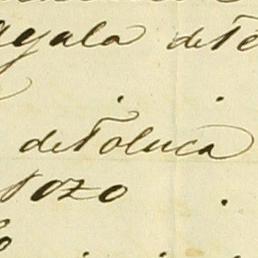 ayala de Te
de Toluca
Pozo